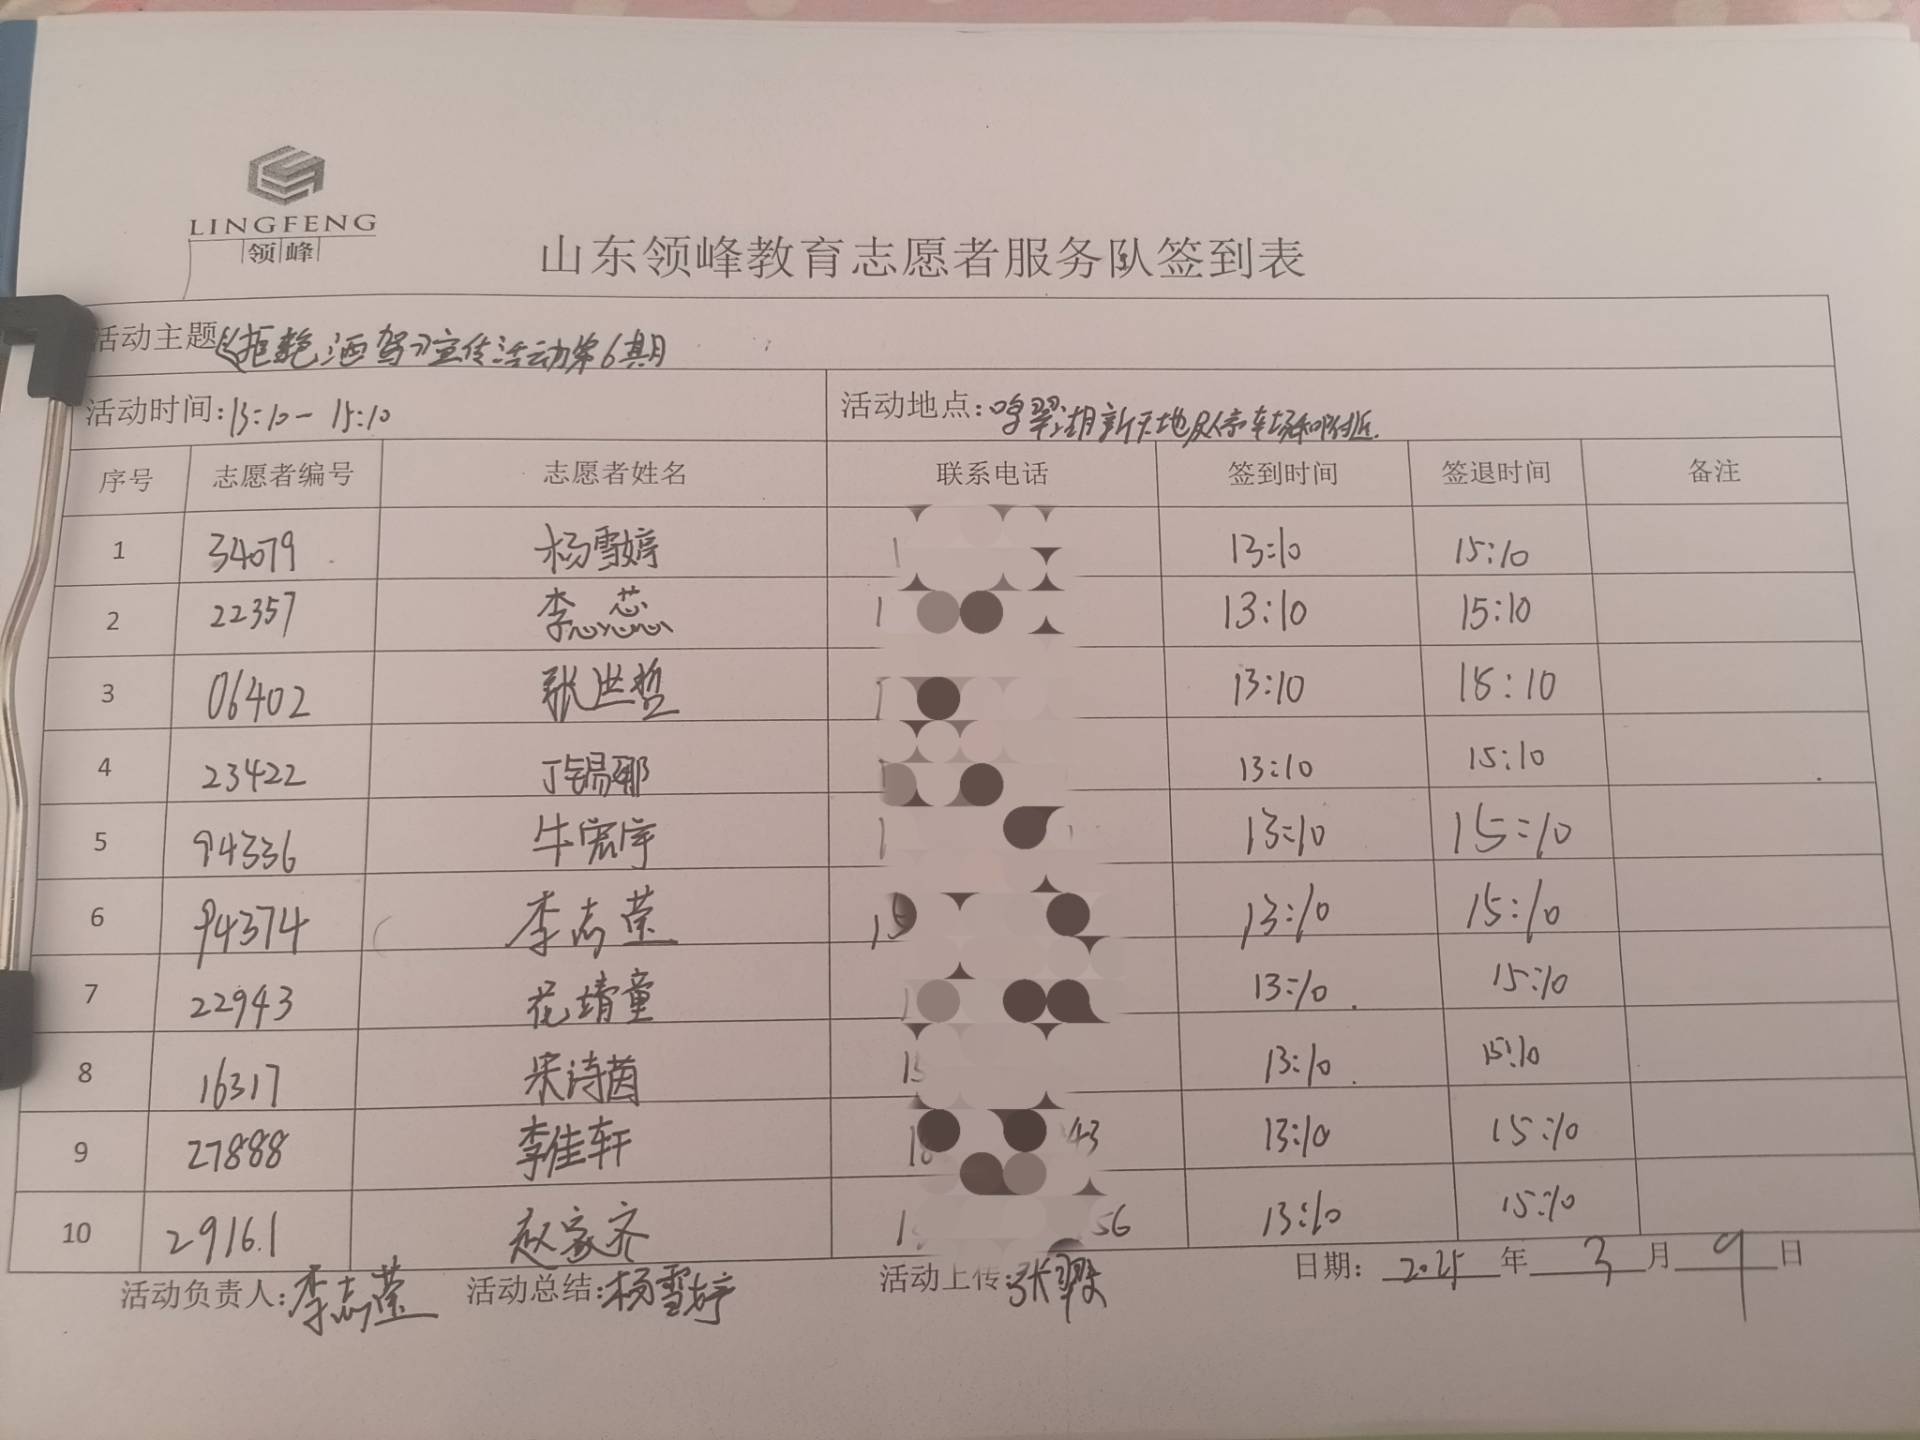 LINGFENG
领峰
山东领峰教育志愿者服务队签到表
活动主题《拒绝酒驾》宣传活动第6期
活动时间:13:10-15:10 活动地点:鸣翠湖新天地及停车场和附近.
序号 志愿者编号 志愿者姓名 联系电话 签到时间 签退时间 备注
1 34079 杨雪婷 1 13:10 15:10
2 22357 李蕊 1 13:10 15:10
3 06402 张世哲 1 13:10 15:10
4 23422 丁锡 13:10 15:10
5 94336 牛宏宇 1 13:10 15:10
6 94374 李志荣 15 13:10 15:10
7 22943 花靖童 1 13:10 15:10
8 16317 宋诗茵 15 13:10 15:10
9 27888 李佳轩 18 43 13:10 15:10
10 29161 赵家齐 1 56 13:10 15:10
活动负责人:李志荣 活动总结:杨雪婷 活动上传:张翠 日期: 2025 年 3 月 9 日